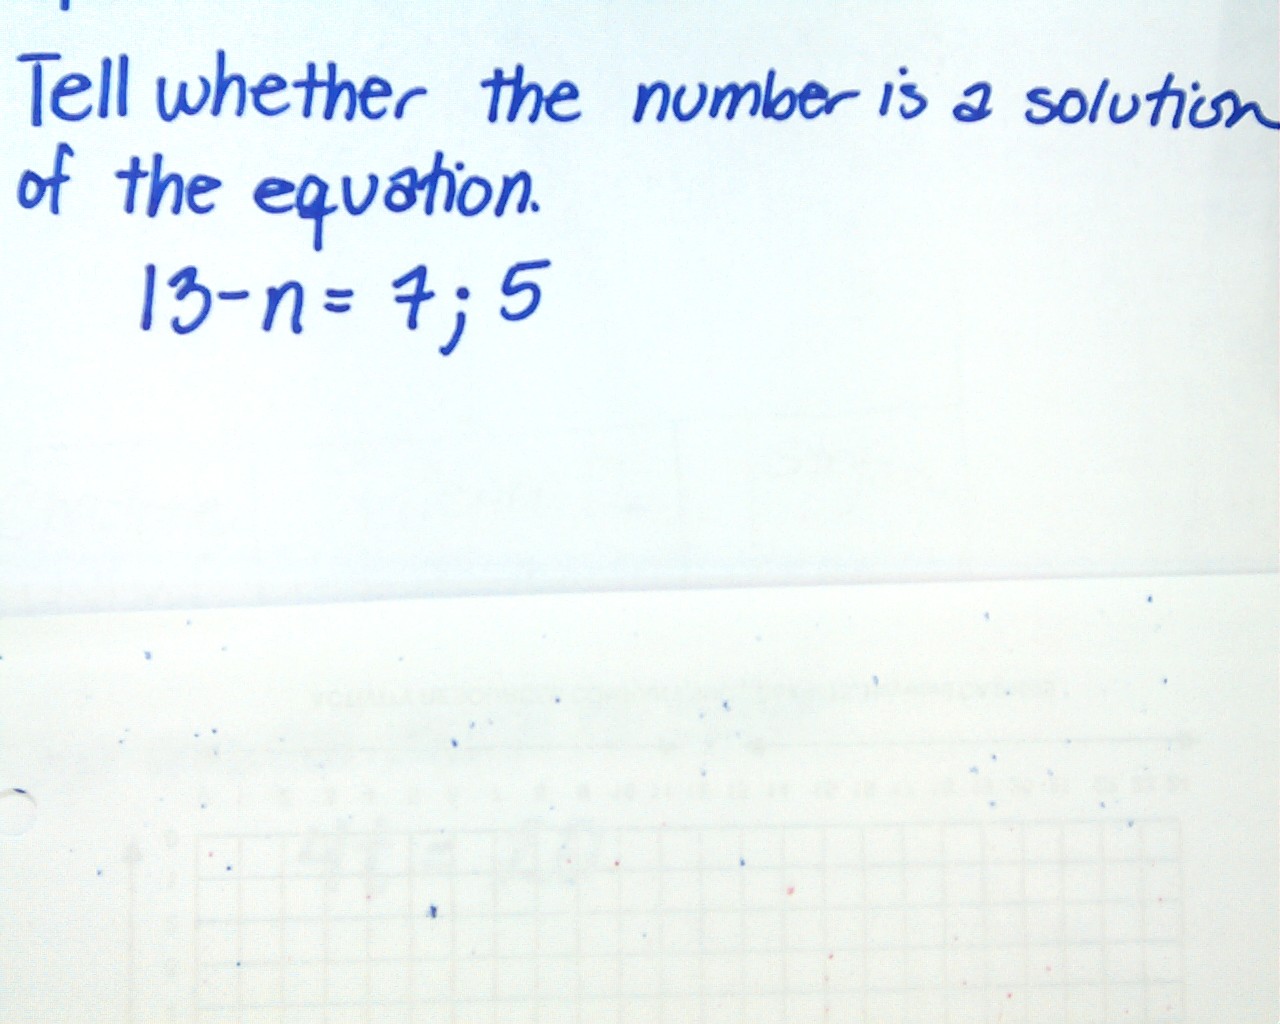 Tell whether the number is a solution
of the equation.
13-n = 7; 5